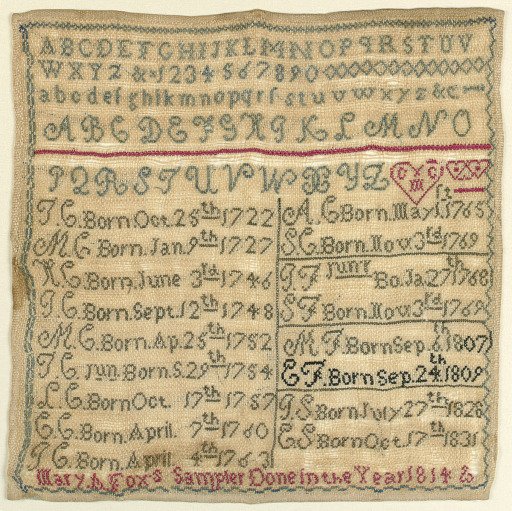 ABCDEFGHIJKLMNOPQRSTUV
WXYZ & 1234567890
abcdefghiklmnopqrſstuvwxyz&c
ABCDEFGHIKLMNO
PQRSTUVWXYZ C m C
T C. Born Oct. 25th 1722
M C. Born Jan. 9th 1727
Born June 3rd 1746
Born Sept. 12th 1748
M C. Born Ap. 25th 1752
T C Jun. Born S. 29th 1754
L C. Born Oct. 17th 1757
C C. Born April. 7th 1760
Born April 4th 1763
A C Born May 1st 1765
S C. Born Nov. 3rd 1769
Junr Bo. Ja 27th 1768
S F Born Nov. 3rd 1769
M F. Born Sep. 6th 1807
E F. Born Sep. 24th 1809
Born July 27th 1828
E S Born Oct. 17th 1831
Mary Fox's Sampler Done in the Year 1814 &